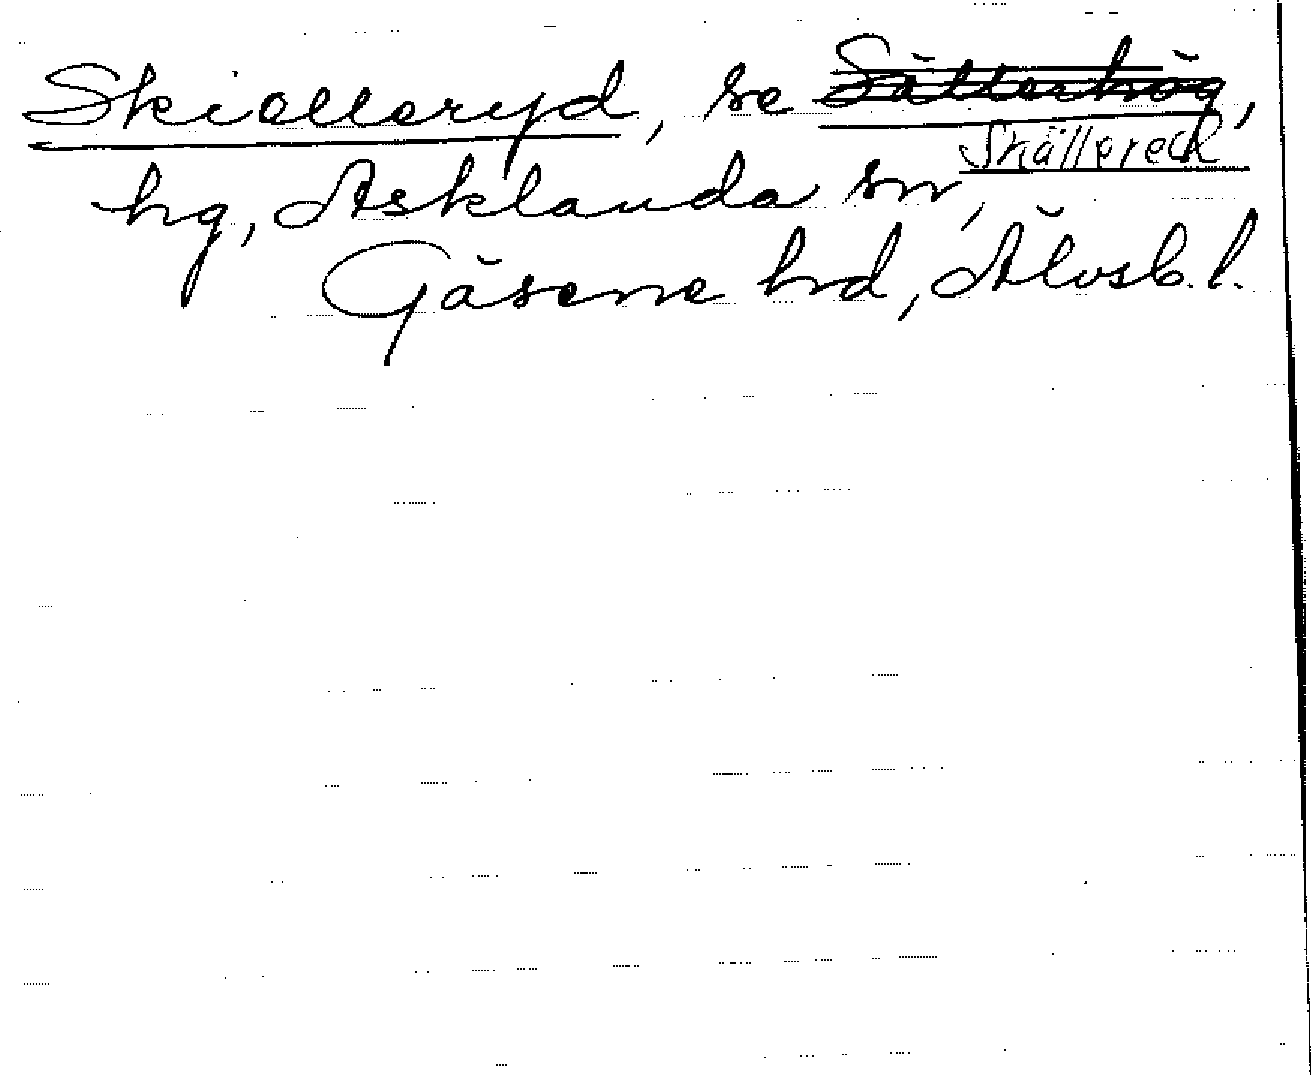 Skiælleryd, se Sälleshög,
Skällered
hg, Asklanda sn,
Gäsene hd, Älvsb. l.